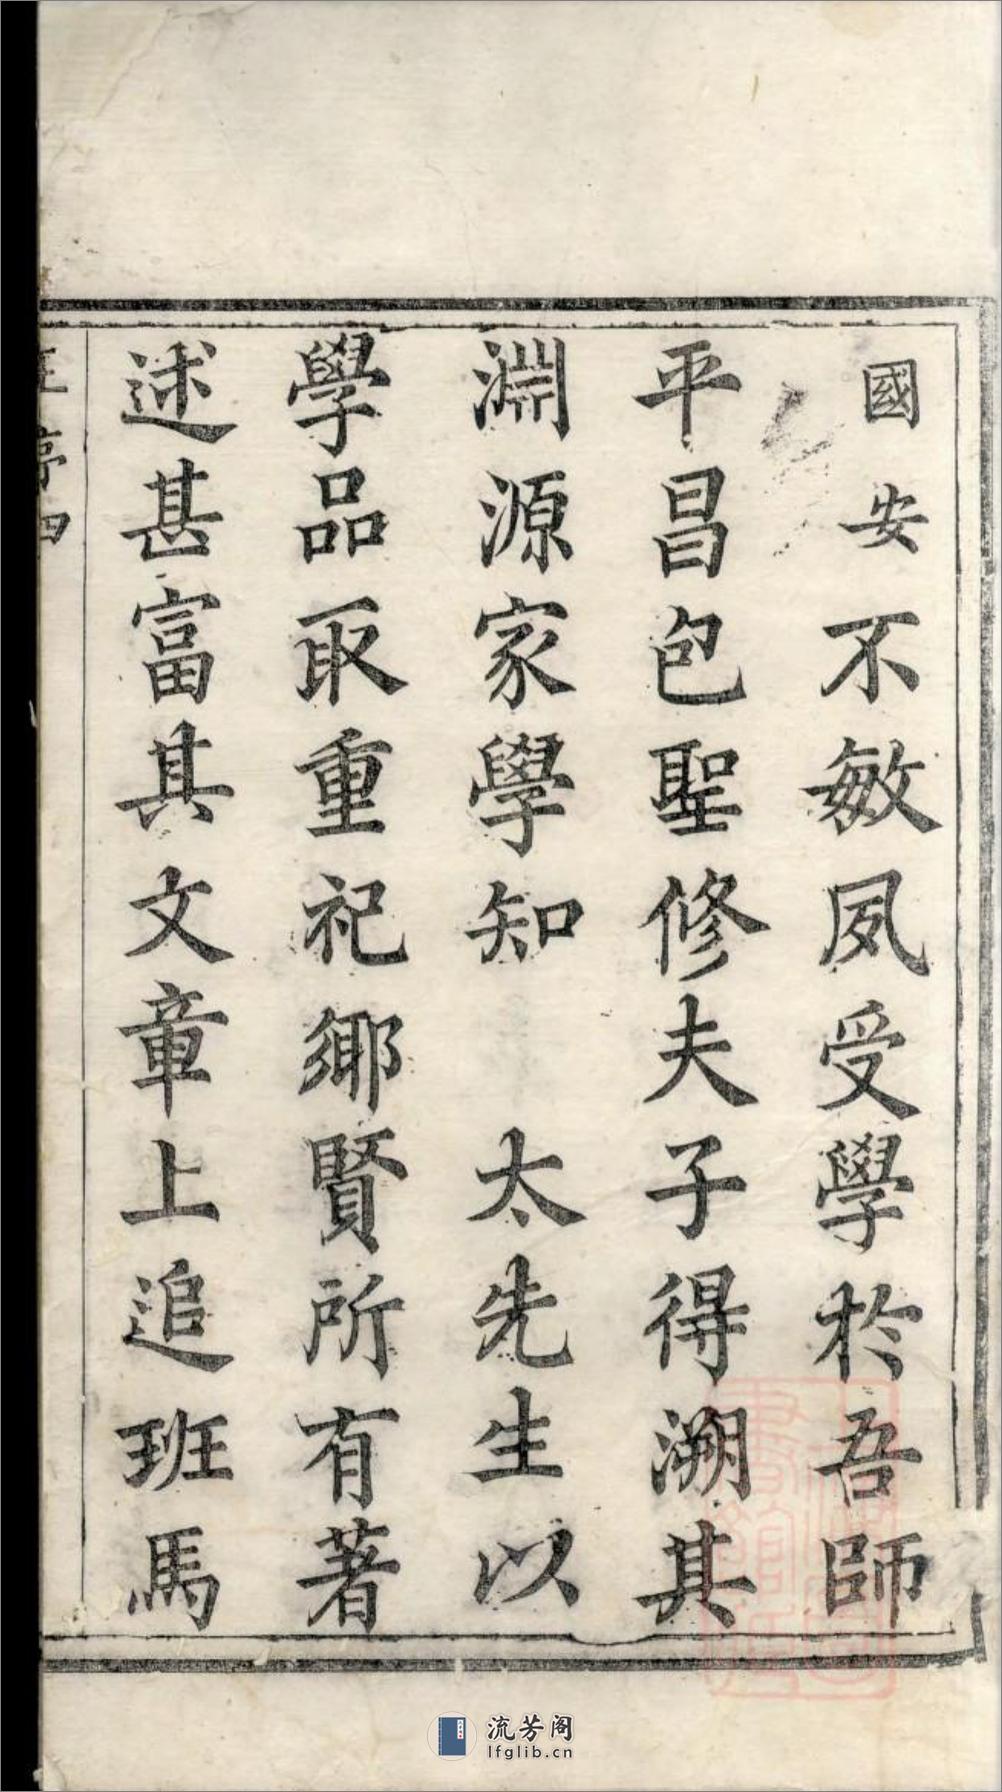 國安不敏夙受學於吾師
平昌包聖修夫子得溯其
淵源家學知　太先生以
學品取重祀鄉賢所有著
述甚富其文章上追班馬
序四
流芳阁
lfglib.cn